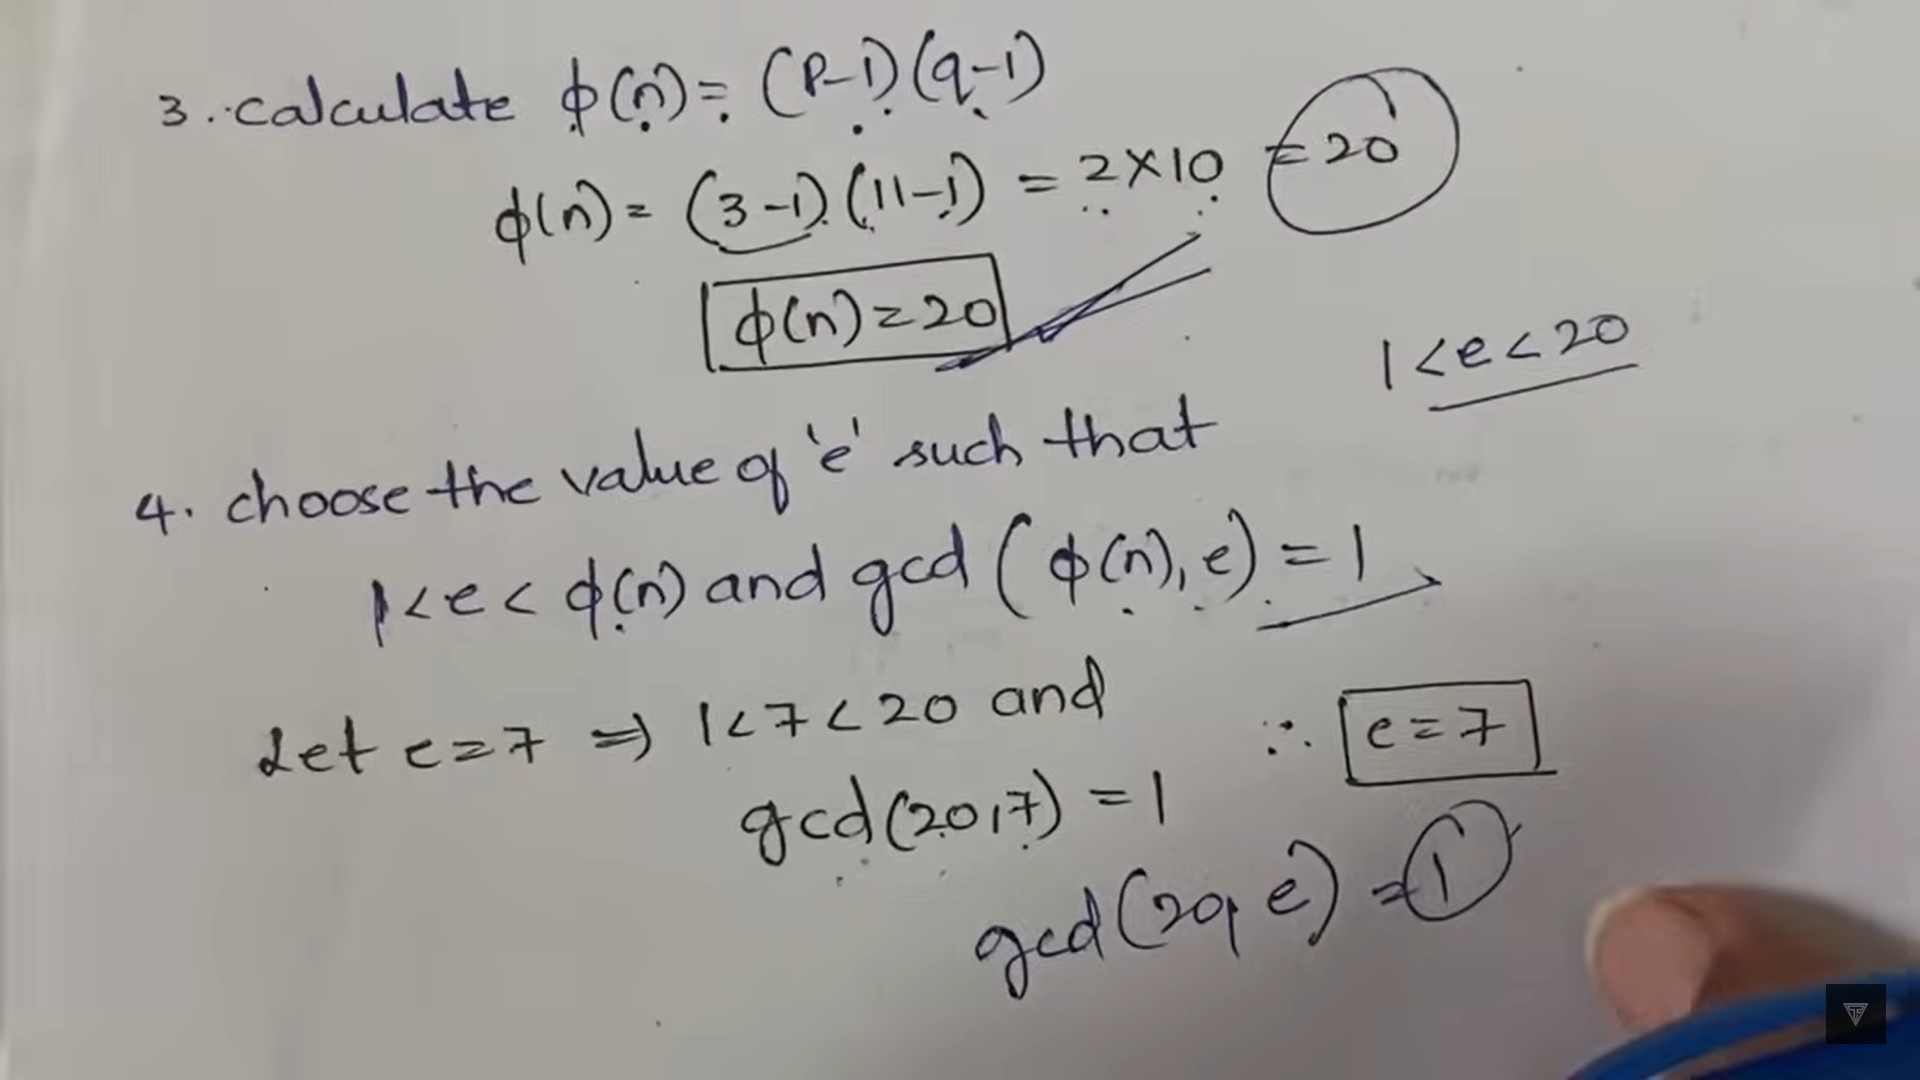 3. calculate ϕ(n) = (P-1)(q-1)
ϕ(n) = (3-1)(11-1) = 2×10 = 20
ϕ(n) = 20
1<e<20
4. choose the value of 'e' such that
1<e<ϕ(n) and gcd(ϕ(n), e) = 1
Let e=7 ⇒ 1<7<20 and
∴ e=7
gcd(20,7) = 1
gcd(20, e) = 1